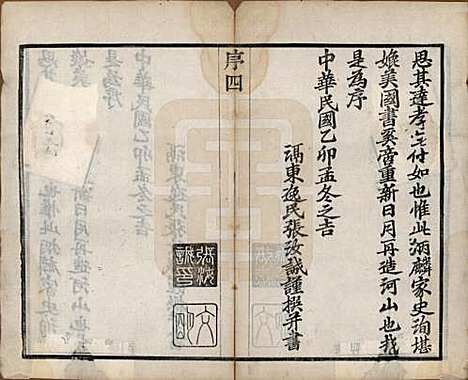 思其達孝付如也惟此麟家史洵堪
媲美國書奚啻重新日月再造河山也哉
是為序
中華民國乙卯孟冬之吉
東逸民張汝誠謹撰并書
張汝誠印
序四